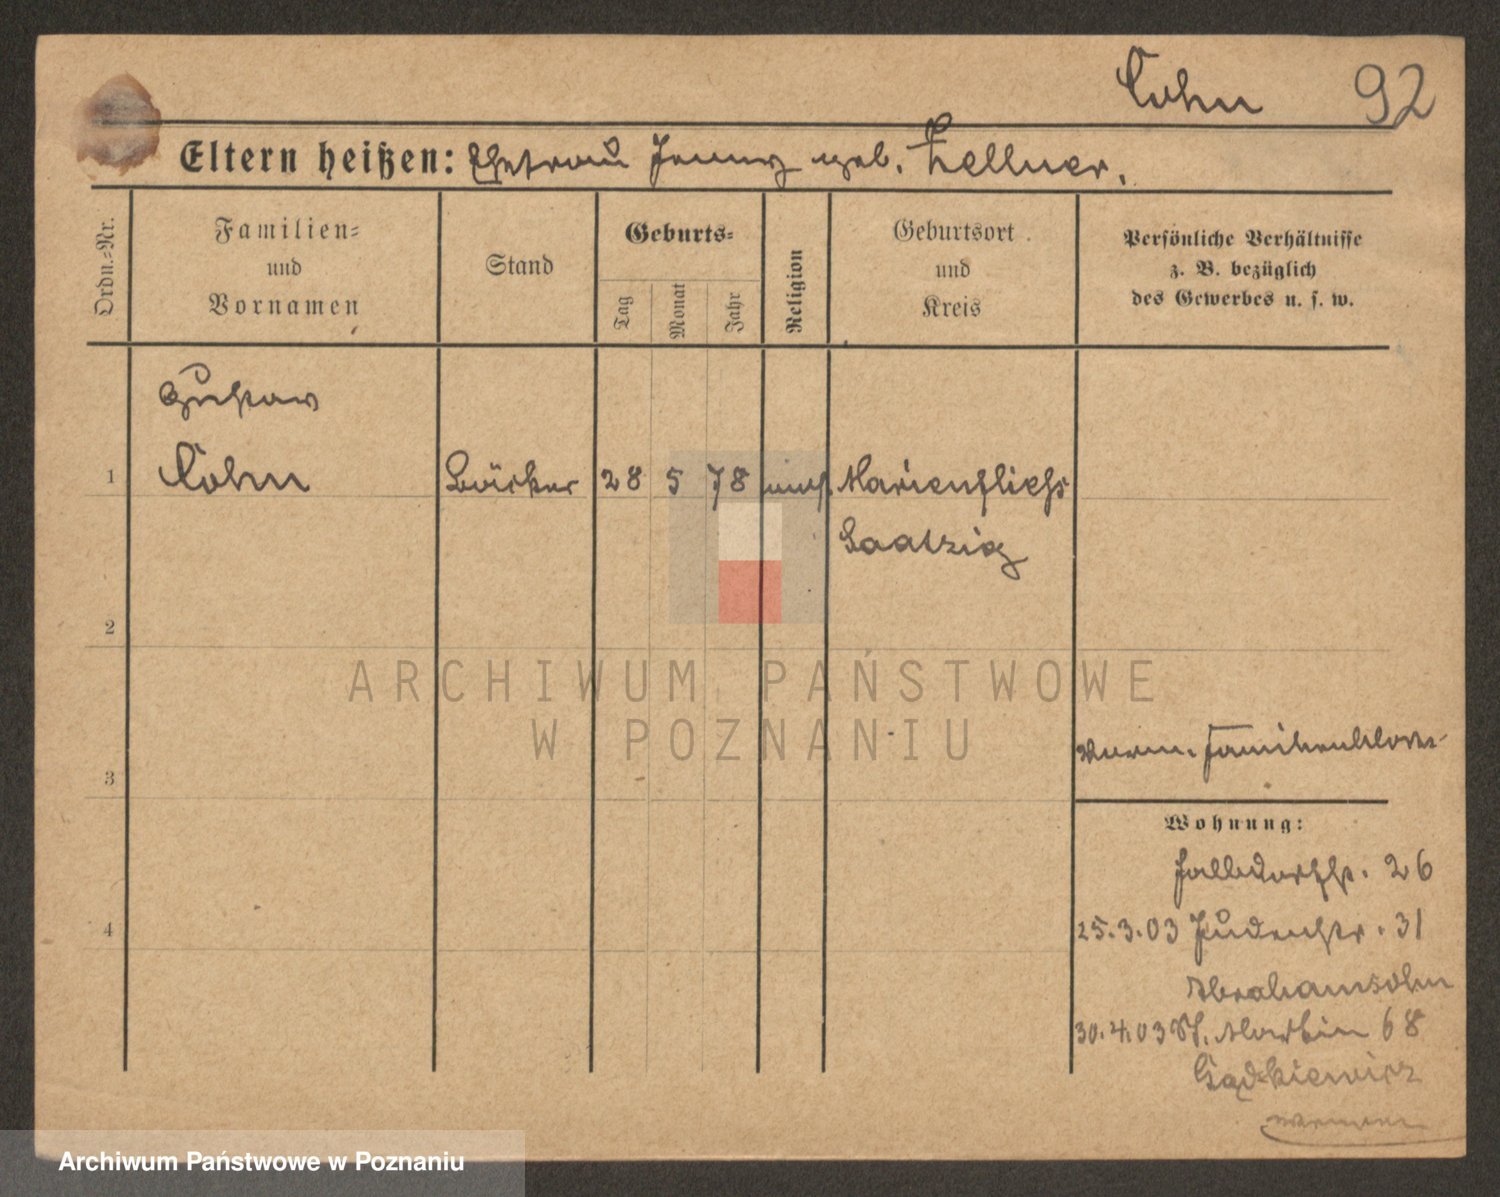 Cohn 92
Eltern heißen: Ehefrau Jenny geb. Zellner.
Ordn.-Nr.
Familien-
und
Vornamen
Stand
Geburts-
Tag
Monat
Jahr
Religion
Geburtsort
und
Kreis
Persönliche Verhältnisse
z. B. bezüglich
des Gewerbes u. s. w.
Gustav
1 Cohn Bäcker 28 5 78 mos. Marienfließ
Saatzig
2
ARCHIWUM PAŃSTWOWE
W POZNANIU
3
4
Wohnung:
Halbdorfstr. 26
25.3.03 Judenstr. 31
Abrahamsohn
30.4.03 St. Martin 68
Archiwum Państwowe w Poznaniu